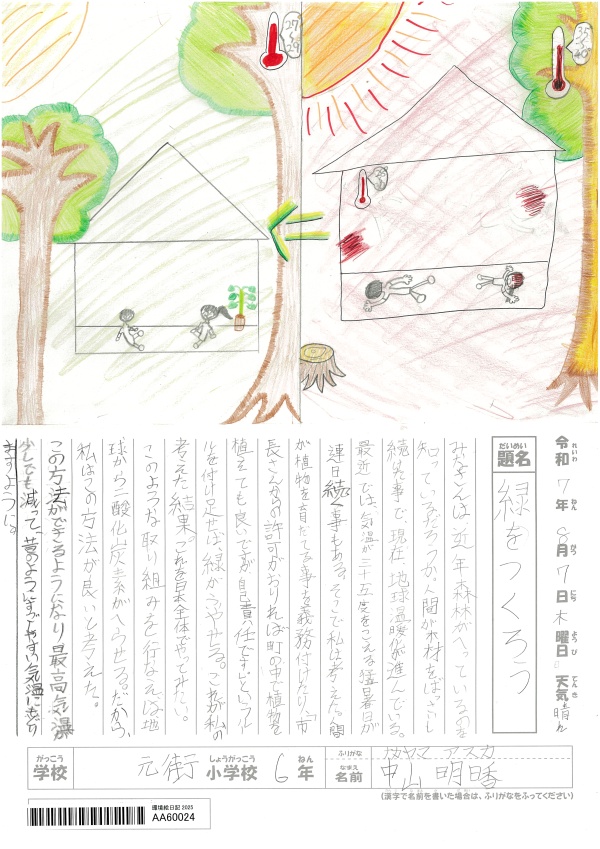 27〜29
35〜40
令和7年8月7日木曜日 天気 晴れ
れいわ ねん がつ にち ようび てんき
だいめい
題名
緑をつくろう
みなさんは近年森林がへっているのを
知っているだろうか。人間が木材をばっさいし
続けた事で、現在、地球温暖化が進んでいる。
最近では、気温が三十五度をこえる猛暑日が
連日続く事もある。そこで私は考えた。人間
が植物を育たてる事を義務付けたり、「市
長さんからの許可がおりれば町の中に植物を
植えても良いですが自己責任です」というルー
ルを付け足せば、緑がふやせる。これが私の
考えた結果。これを日本全体でやってみたい。
このような取り組みを行なえば地
球から二酸化炭素がへらせる。だから、
私はこの方法が良いと考えた。
この方法ができるようになり最高気温が
少しでも減って、昔のようにすごしやすい気温にもどり
ますように。
がっこう
学校
元街 小学校 6年
しょうがっこう ねん
ふりがな
ナカヤマ アスカ
なまえ
名前
中山 明香
(漢字で名前を書いた場合は、ふりがなをふってください)
環境絵日記 2025
AA60024